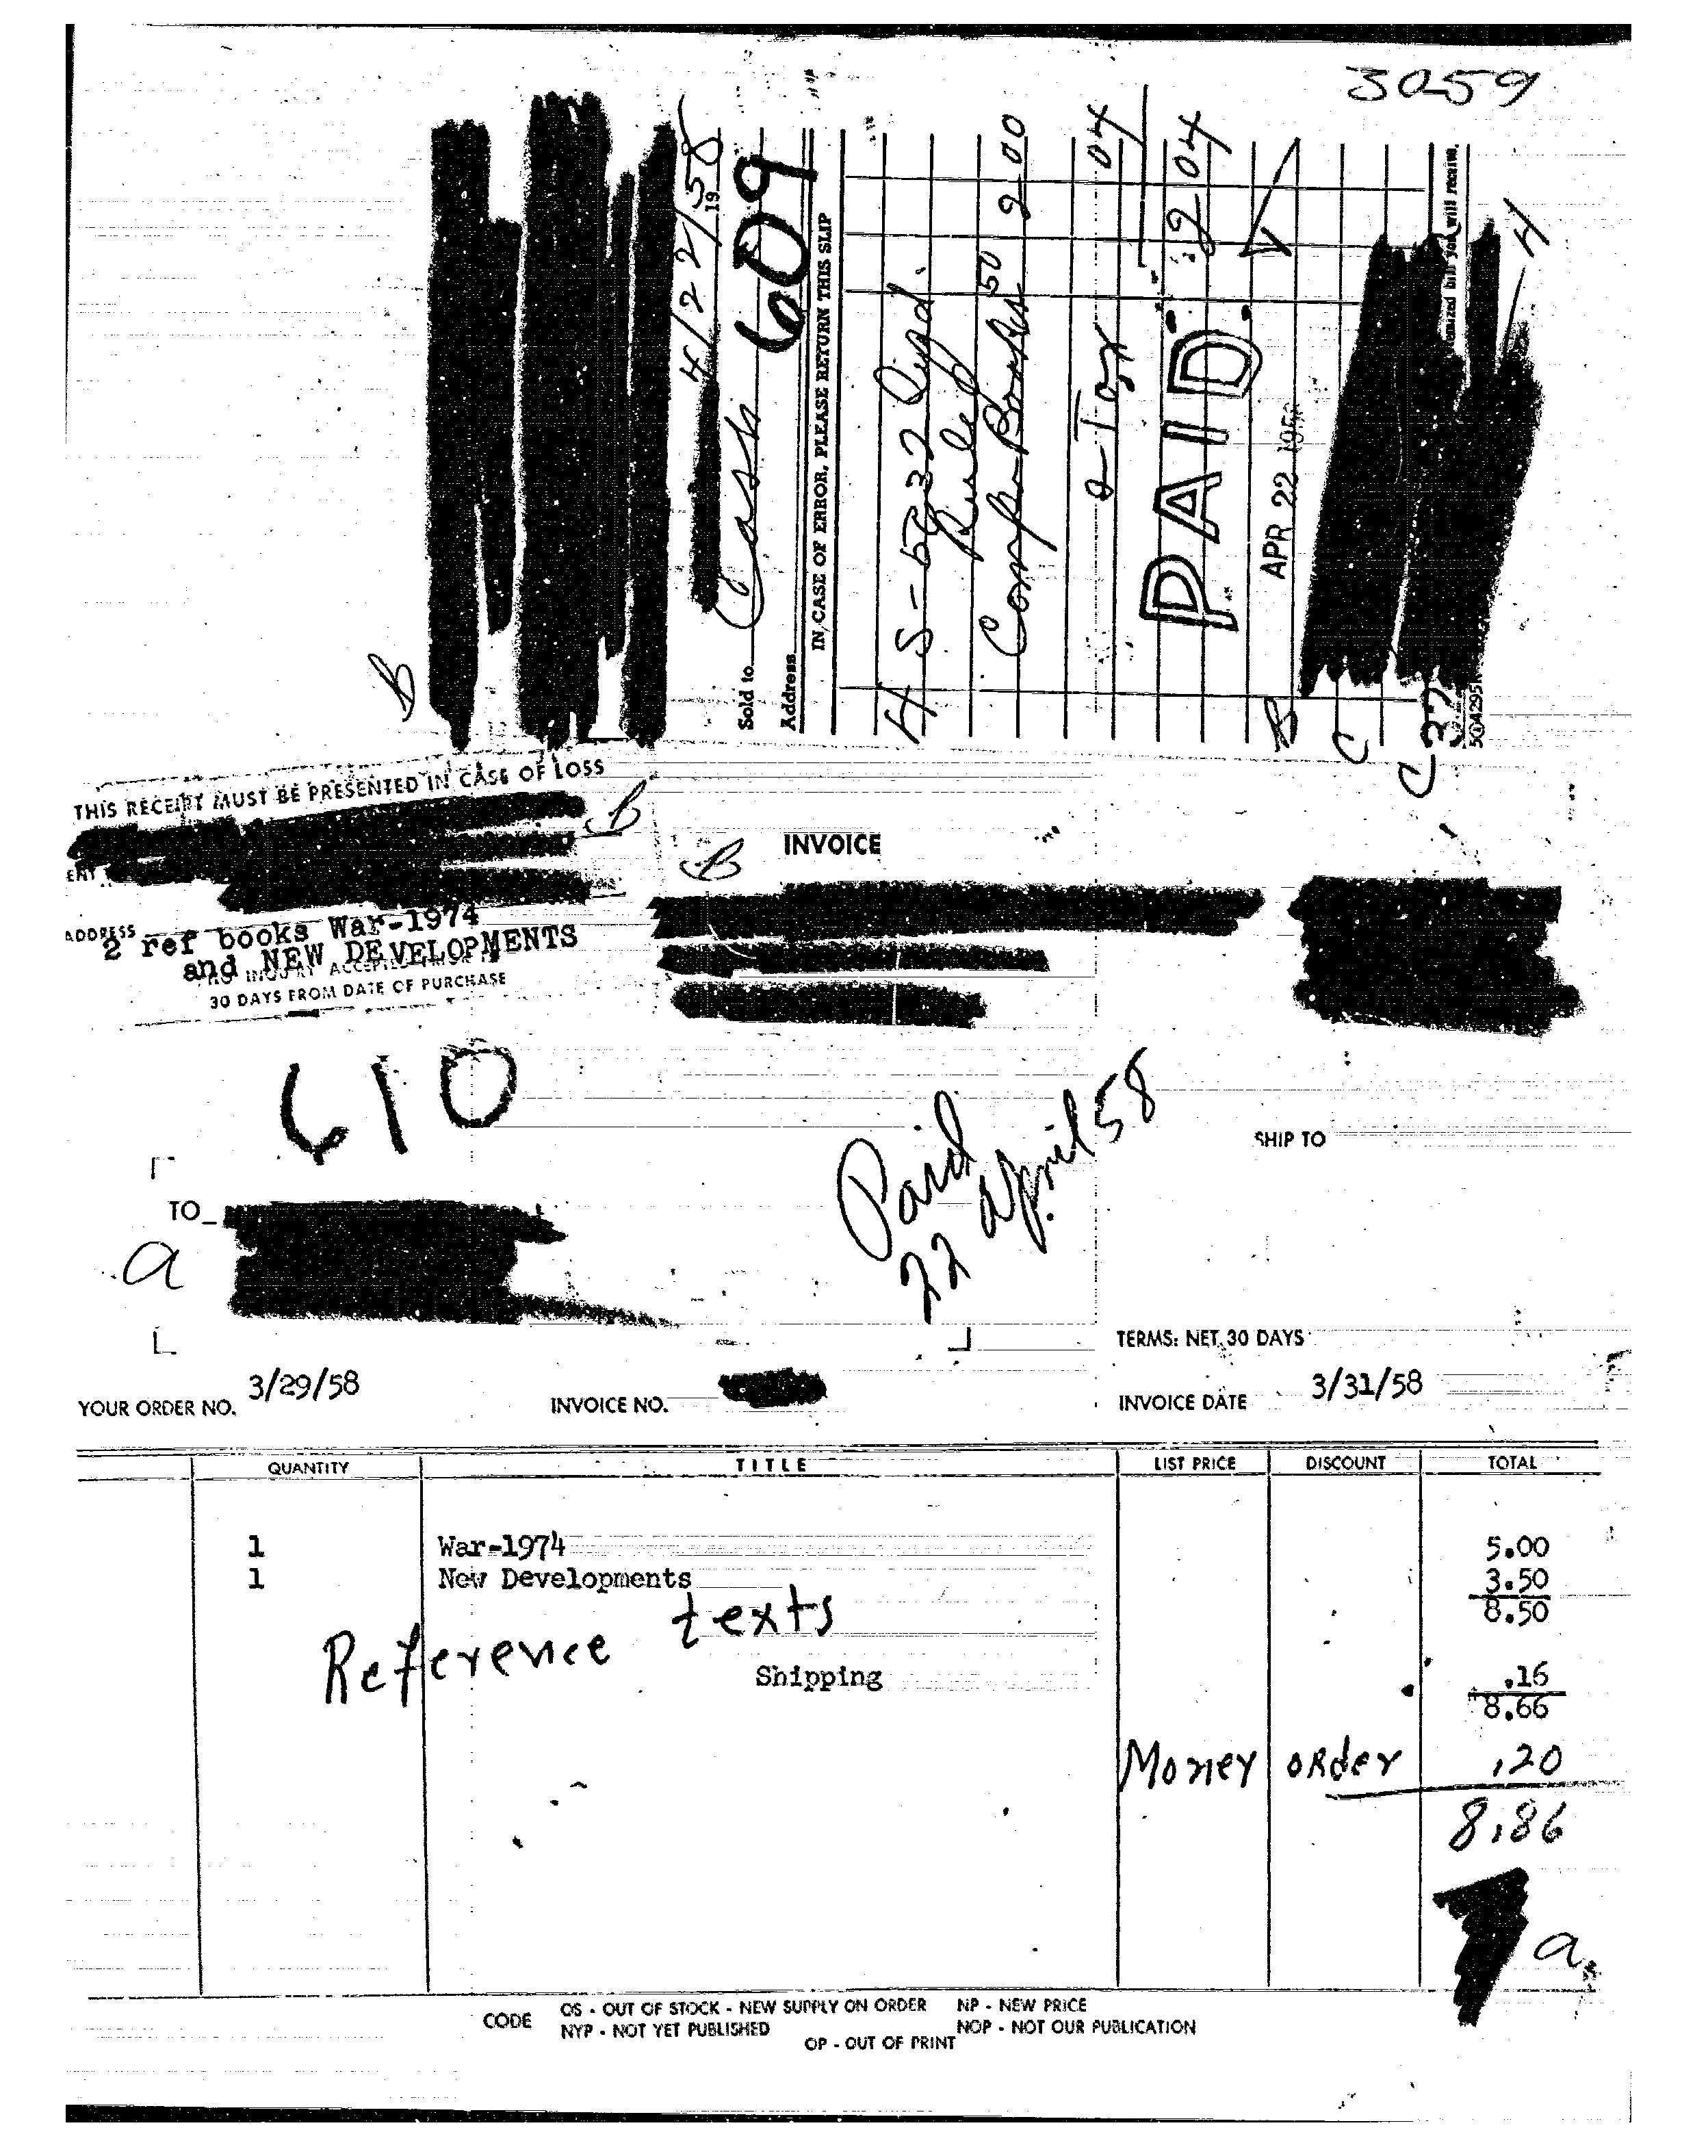 3059
4/22/58
19
609
Sold to Cash
Address
IN CASE OF ERROR, PLEASE RETURN THIS SLIP
4 S-5632
Ruled
Comp. Books 50 2 00
2-Tax 04
2 04
PAID
APR 22 1958
bill you will receive
4
B
B
C
C 37
THIS RECEIPT MUST BE PRESENTED IN CASE OF LOSS
B
ADDRESS
2 ref books War-1974
and NEW DEVELOPMENTS
30 DAYS FROM DATE OF PURCHASE
B
INVOICE
610
Paid
22 April 58
SHIP TO
TO
a
TERMS: NET 30 DAYS
YOUR ORDER NO. 3/29/58
INVOICE NO.
INVOICE DATE 3/31/58
QUANTITY TITLE LIST PRICE DISCOUNT TOTAL
1 War-1974 5.00
1 New Developments 3.50
8.50
Reference texts
Shipping .16
8.66
Money order .20
8.86
a
CODE OS - OUT OF STOCK - NEW SUPPLY ON ORDER NP - NEW PRICE
NYP - NOT YET PUBLISHED NOP - NOT OUR PUBLICATION
OP - OUT OF PRINT